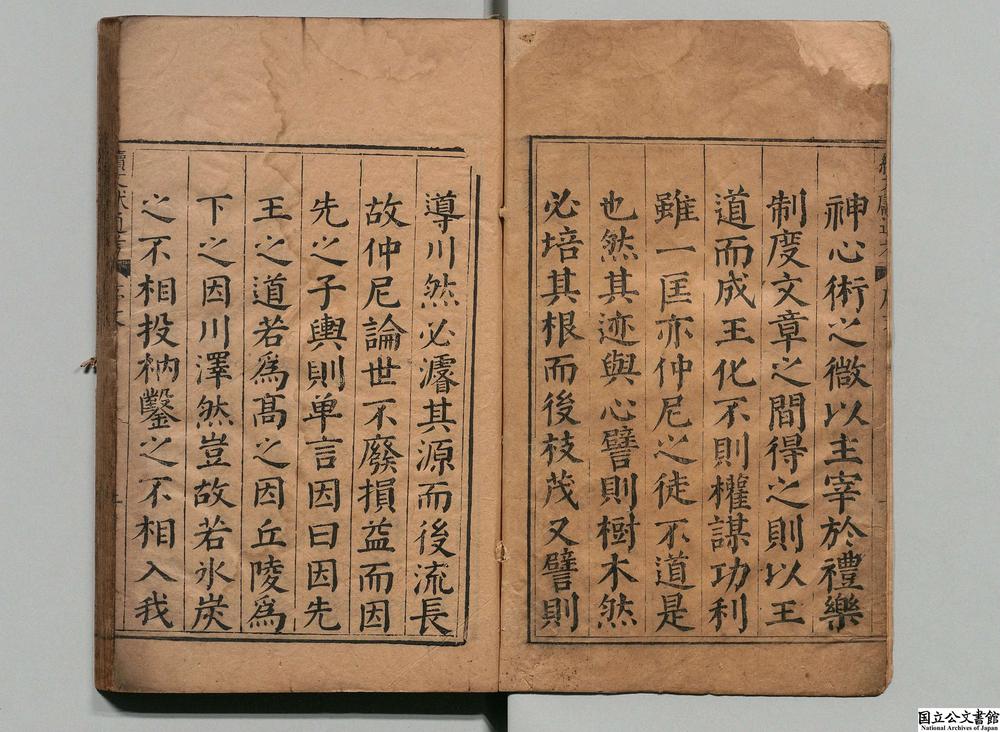 神心術之微以主宰於禮樂
制度文章之間得之則以王
道而成王化不則權謀功利
雖一匡亦仲尼之徒不道是
也然其迹與心譬則樹木然
必培其根而後枝茂又譬則
導川然必濬其源而後流長
故仲尼論世不廢損益而因
先之子輿則单言因曰因先
王之道若爲髙之因丘陵爲
下之因川澤然豈故若氷炭
之不相投枘鑿之不相入我
国立公文書館
National Archives of Japan